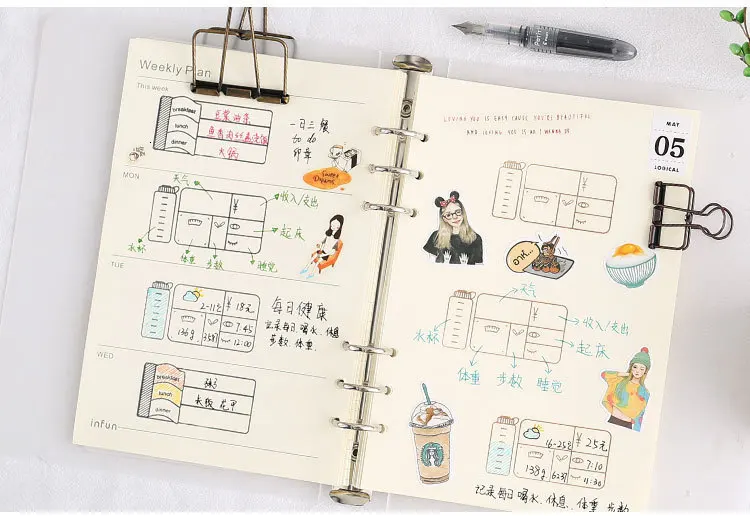 Weekly Plan
This week
breakfast
豆浆油条
lunch
鱼香肉丝盖浇饭
dinner
火锅
一日三餐
to do
印章
Sweet Dreams
MON
天气
¥
收入/支出
起床
水杯
体重
步数
睡觉
TUE
2-11℃
¥ 18元
7:45
136g
3581
12:00
每日健康
记录每日喝水、休息
步数、体重.
WED
breakfast
粥
lunch
米饭 花甲
dinner
inFun
LOVING YOU IS EASY CAUSE YOU'RE BEAUTIFUL
AND LOVING YOU IS ALL I WANNA DO
MAY
05
LOGICAL
¥
天气
¥
收入/支出
水杯
起床
体重
步数
睡觉
16-25℃
¥ 25元
7:10
138g
6237
11:30
记录每日喝水、休息、体重 步数